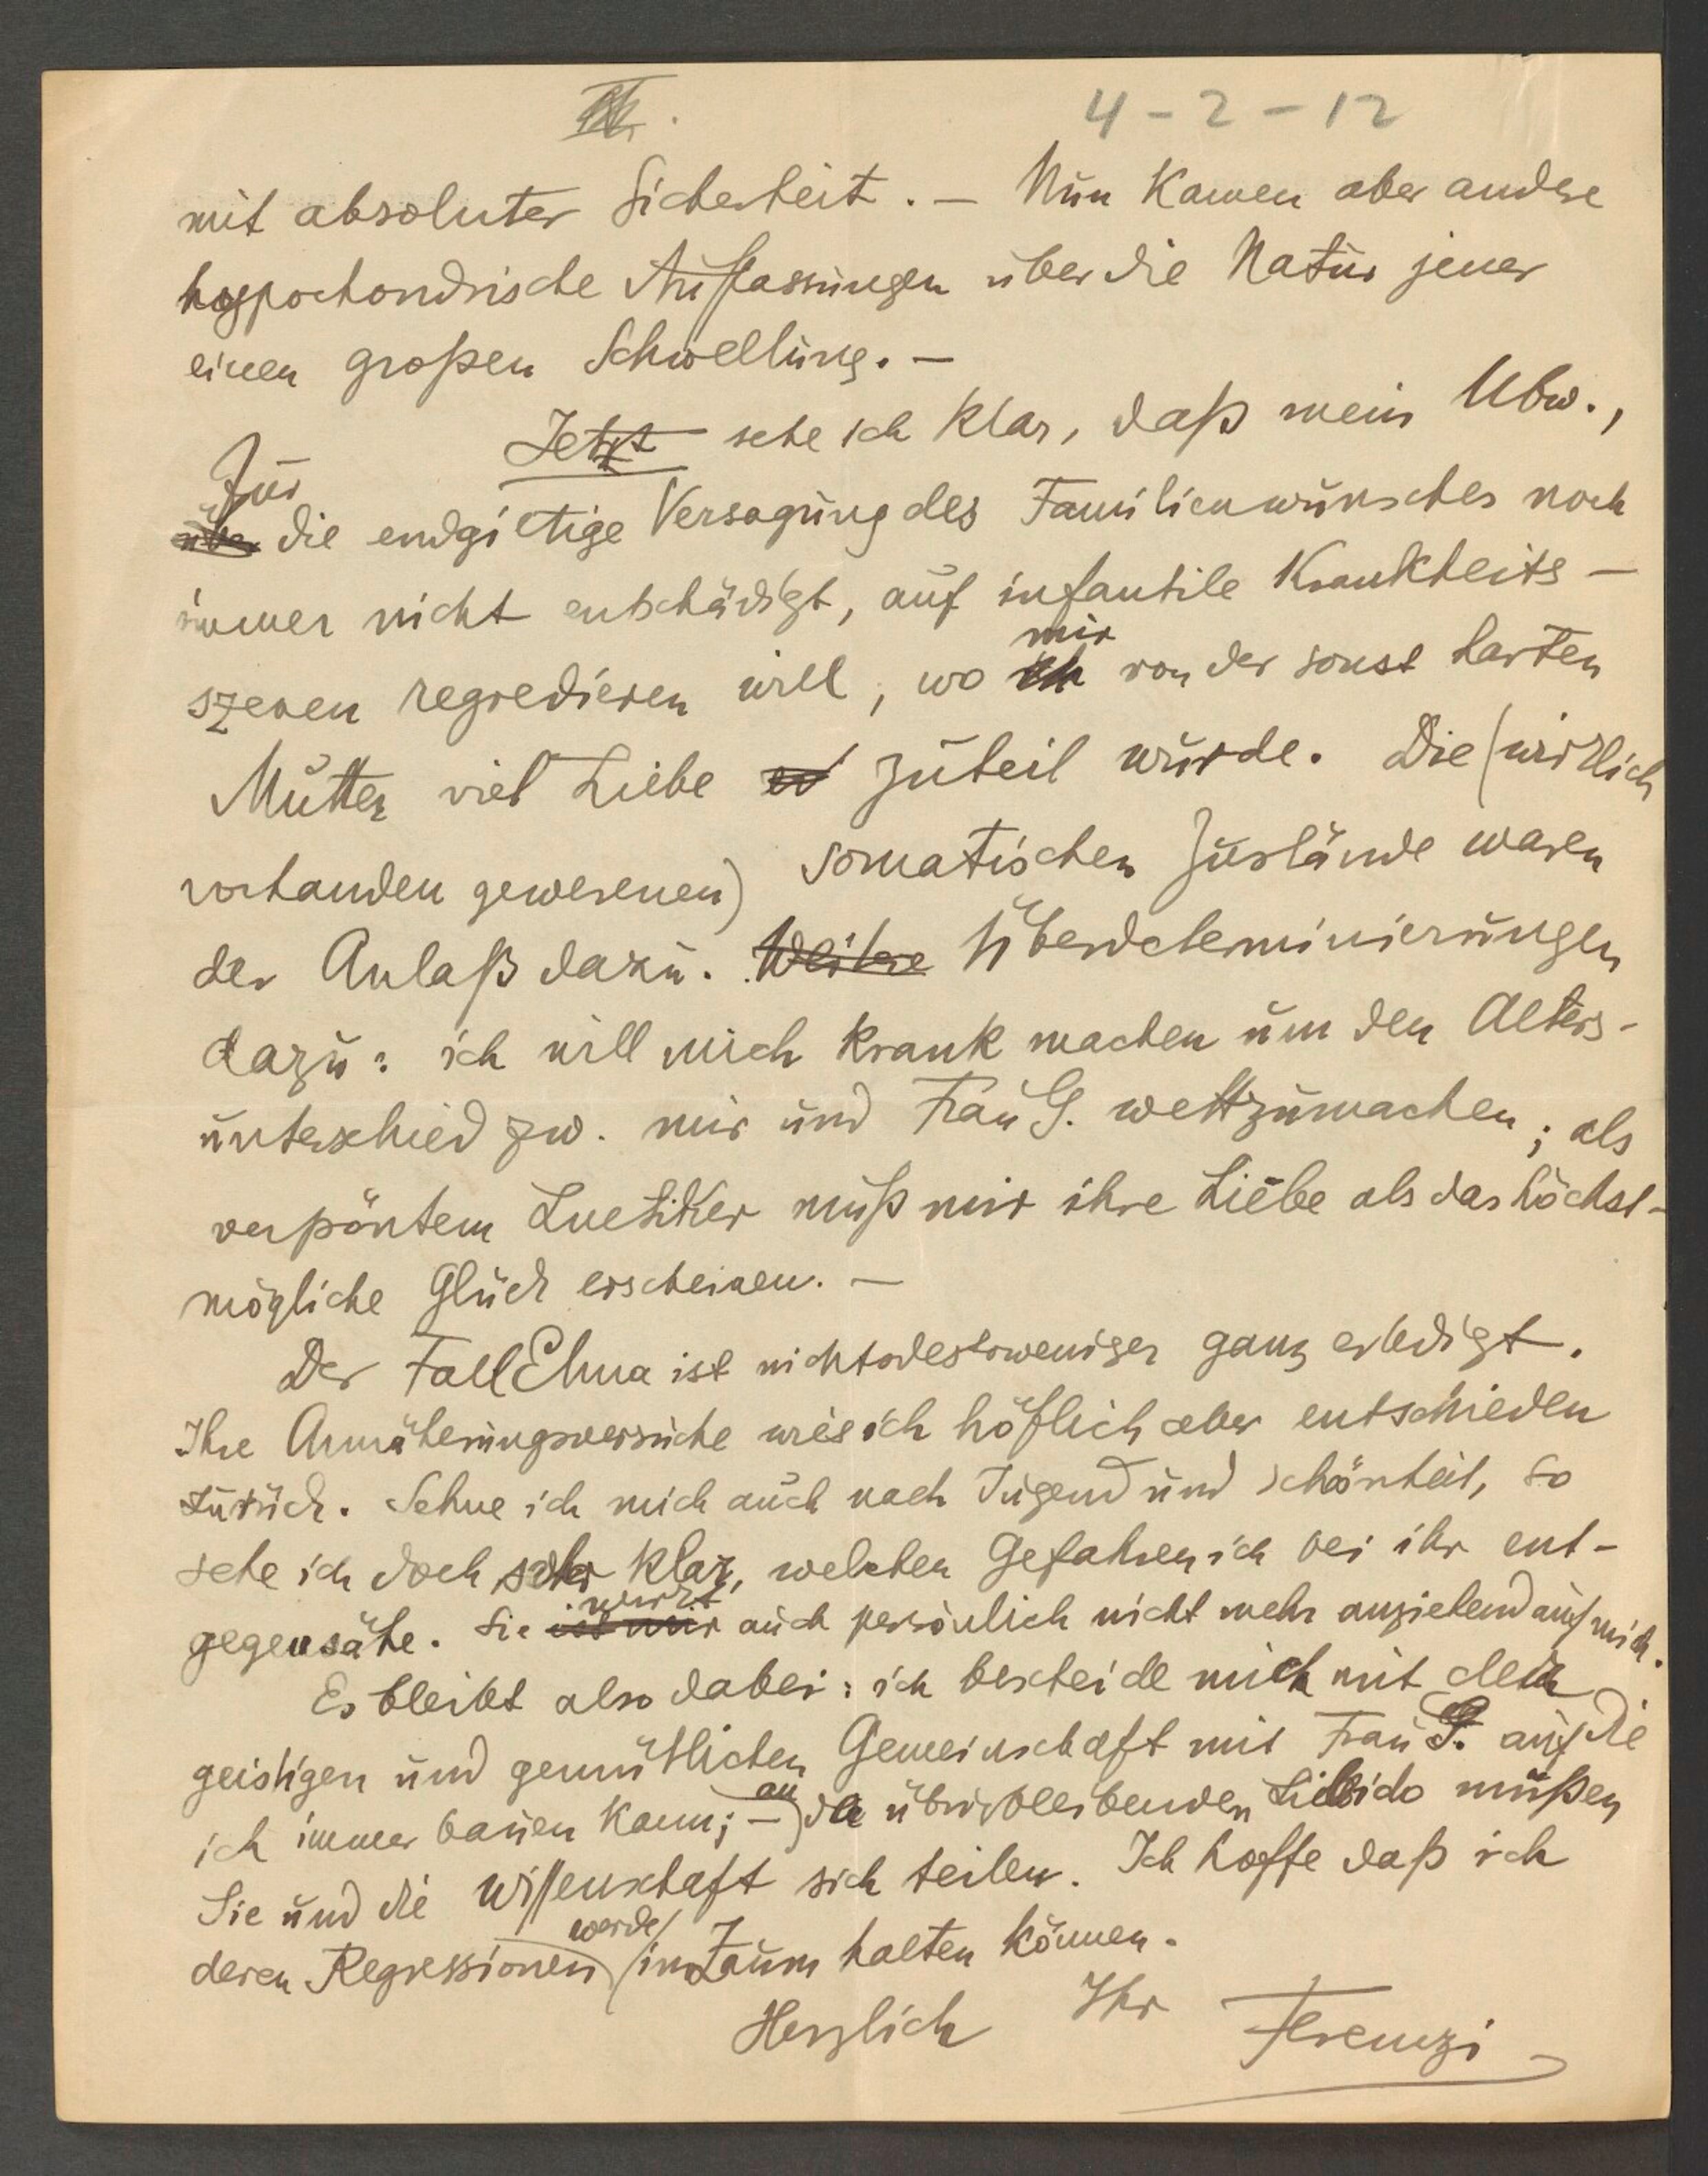 4-2-12
mit absoluter Sicherheit. — Nun kamen aber andere
hypochondrische Auffassungen über die Natur jener
einen großen Schwellung. —
Jetzt sehe ich klar, daß mein Ubw.,
für
über die endgiltige Versagung des Familienwunsches noch
immer nicht entschädigt, auf infantile Krankheits-
mir
szenen regredieren will, wo ich von der sonst harten
Mutter viel Liebe zuteil wurde. Die (wirklich
vorhanden gewesenen) somatischen Zustände waren
der Anlaß dazu. Weitere Überdeterminierungen
dazu: ich will mich krank machen um den Alters-
unterschied zw. mir und Frau G. wettzumachen; als
verpöntem Luetiker muß mir ihre Liebe als das höchst-
mögliche Glück erscheinen. —
Der Fall Elma ist nichtsdestoweniger ganz erledigt.
Ihre Annäherungsversuche wies ich höflich aber entschieden
zurück. Sehne ich mich auch nach Jugend und Schönheit, so
sehe ich doch sehr klar, welchen Gefahren ich bei ihr ent-
wirkt
gegensähe. Sie ist mir auch persönlich nicht mehr anziehend auf mich.
Es bleibt also dabei: ich bescheide mich mit der
geistigen und gemütlichen Gemeinschaft mit Frau G. auf die
an
ich immer bauen kann; — der übrigbleibenden Libido müßen
Sie und die Wissenschaft sich teilen. Ich hoffe daß ich
werde
deren Regressionen im Zaum halten können.
Herzlich Ihr Ferenczi